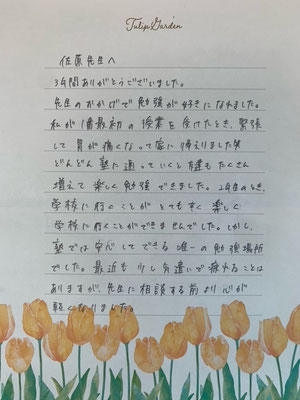 Tulip Garden
佐原先生へ
3年間ありがとうございました。
先生のおかげで勉強が好きになれました。
私が1番最初の授業を受けたとき、緊張
して胃が痛くなって家に帰えりました笑
どんどん塾に通っていくと友達もたくさん
増えて楽しく勉強できました。2年生のとき、
学校に行くことがとても楽しく
学校に行くことができませんでした。しかし、
塾では安心してできる唯一の勉強場所
でした。最近も少し勘違いで疲れることは
ありますが、先生に相談する前より心が
軽くなりました。